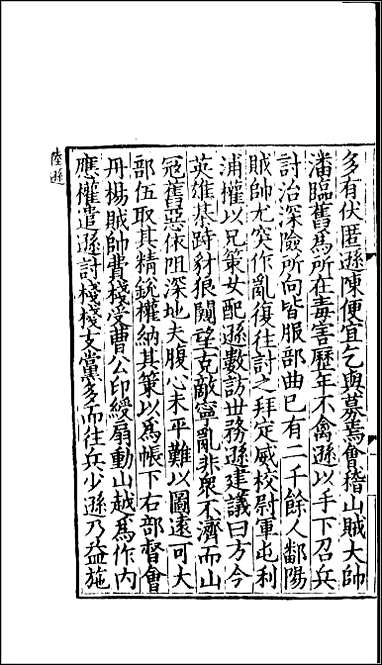 多有伏匿遜陳便宜乞與募焉會稽山賊大帥
潘臨舊為所在毒害歷年不禽遜以手下召兵
討治深險所向皆服部曲已有二千餘人鄱陽
賊帥尤突作亂復往討之拜定威校尉軍屯利
浦權以兄策女配遜數訪世務遜建議曰方今
英雄棊跱豺狼闚望克敵寧亂非衆不濟而山
冦舊惡依阻深地夫腹心未平難以圖遠可大
部伍取其精銳權納其策以為帳下右部督會
丹楊賊帥費棧受曹公印綬扇動山越為作内
應權遣遜討棧棧支黨多而往兵少遜乃益施
陸遜